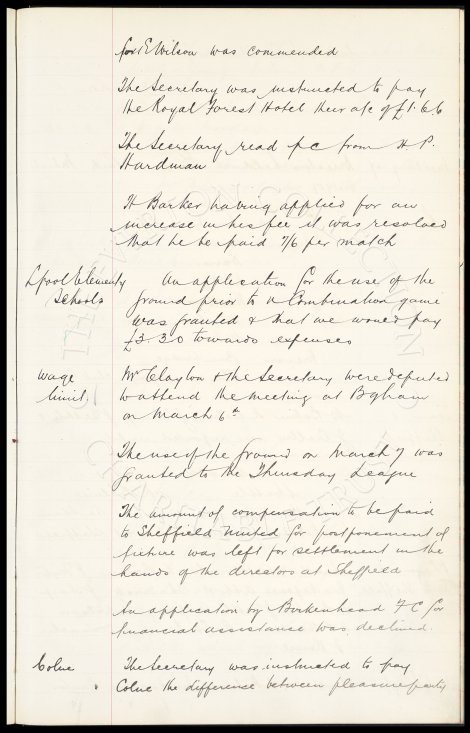 for E Wilson was commended
The Secretary was instructed to pay
the Royal Forest Hotel their a/c of £1.6.6
The Secretary read pc from H P.
Hardman
H Barker having applied for an
increase in his fee it was resolved
that he be paid 7/6 per match
Lpool Elementy An application for the use of the
Schools ground prior to a Combination game
was granted & that we would pay
£3.3.0 towards expenses
Wage Mr Clayton & the Secretary were deputed
limit to attend the meeting at B'gham
on March 6th
The use of the ground on March 7 was
granted to the Thursday League
The amount of compensation to be paid
to Sheffield United for postponement of
fixture was left for settlement in the
hands of the directors at Sheffield
An application by Birkenhead F C for
financial assistance was declined.
Colne The Secretary was instructed to pay
Colne the difference between pleasure party